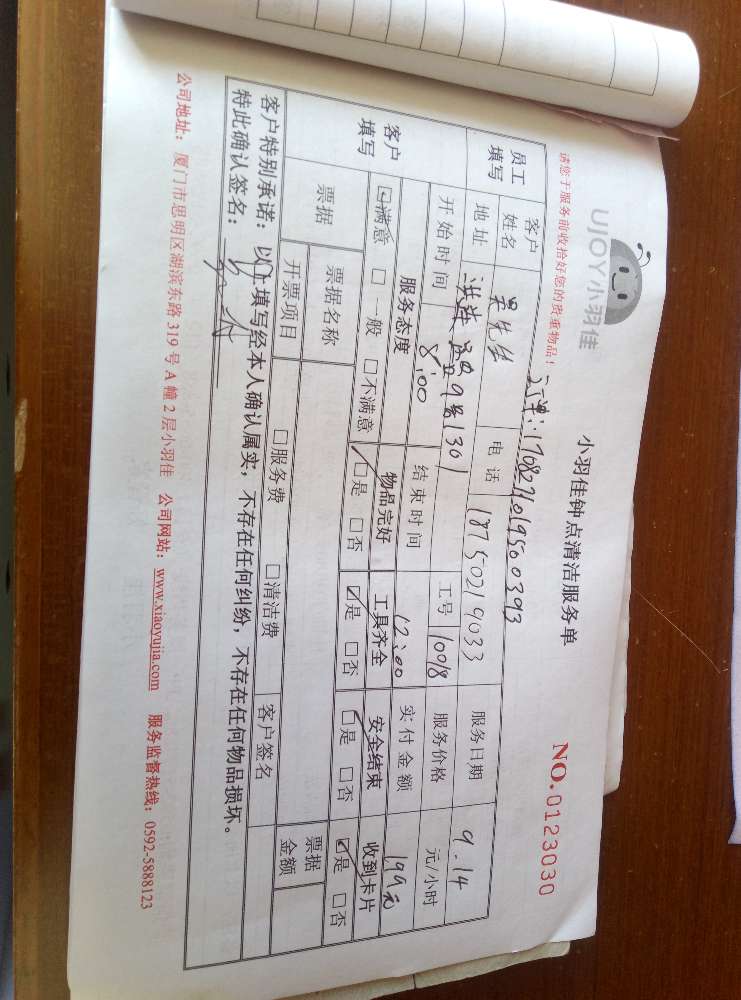 UJOY小羽佳
小羽佳钟点清洁服务单
NO.0123030
请您于服务前收拾好您的贵重物品!
订单:1708271019500393
员工填写
客户姓名 吴先生 电话 18750219033 服务日期 9.14
地址 洪莲 9号1301 工号 10018 服务价格 元/小时
开始时间 8:00 结束时间 12:00 实付金额 199元
客户填写
服务态度 物品完好 工具齐全 安全结束 收到卡片
☑满意 □一般 □不满意 ☑是 □否 ☑是 □否 ☑是 □否 ☑是 □否
票据 票据名称 客户签名 票据金额
开票项目 □服务费 □清洁费
客户特别承诺:以上填写经本人确认属实,不存在任何纠纷,不存在任何物品损坏。
特此确认签名:
公司地址:厦门市思明区湖滨东路319号A幢2层小羽佳 公司网站:www.xiaoyujia.com 服务监督热线:0592-5888123